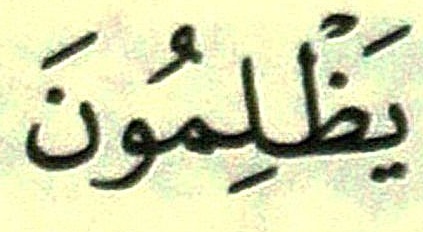 يَظْلِمُونَ